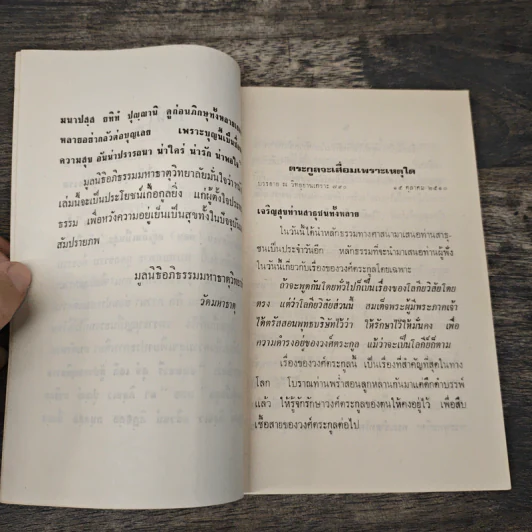 มนาปสฺส ยทิทํ ปุญฺญานิ ดูก่อนภิกษุทั้งหลาย
หลายอย่ากลัวต่อบุญเลย เพราะบุญนี้เป็นชื่อ
ความสุข อันน่าปรารถนา น่าใคร่ น่ารัก น่าพอใจ
มูลนิธิอภิธรรมมหาธาตุวิทยาลัยมั่นใจว่า
เล่มนี้จะเป็นประโยชน์เกื้อกูลยิ่ง แก่ผู้ตั้งใจ
ธรรม เพื่อหวังความอยู่เย็นเป็นสุขทั้งในปัจจุบัน
สัมปรายภพ
มูลนิธิอภิธรรมมหาธาตุวิทยา
วัดมหาธาตุ
ตระกูลจะเสื่อมเพราะเหตุใด
บรรยาย ณ วิทยุยานเกราะ ๗๙๐ ๑๕ ตุลาคม ๒๕๑๐
เจริญสุขท่านสาธุชนทั้งหลาย
ในวันนี้ได้นำหลักธรรมทางศาสนามาเสนอท่านสาธุ-
ชนเป็นประจำวันอีก หลักธรรมที่จะนำมาเสนอท่านผู้ฟัง
ในวันนี้เกี่ยวกับเรื่องของวงศ์ตระกูลโดยเฉพาะ
ถ้าจะพูดกันโดยทั่วไปก็เป็นเรื่องของโลกียวิสัยโดย
ตรง แต่ว่าโลกียวิสัยส่วนนี้ สมเด็จพระผู้มีพระภาคเจ้า
ได้ตรัสสอนพุทธบริษัทไว้ว่า ให้รักษาไว้ให้มั่นคง เพื่อ
ความดำรงอยู่ของวงศ์ตระกูล แม้ว่าจะเป็นโลกีย์ก็ตาม
เรื่องของวงศ์ตระกูลนี้ เป็นเรื่องที่สำคัญที่สุดในทาง
โลก โบราณท่านพร่ำสอนลูกหลานกันมาแต่ดึกดำบรรพ์
แล้ว ให้รู้จักรักษาวงศ์ตระกูลของตนให้คงอยู่ไว้ เพื่อสืบ
เชื้อสายของวงศ์ตระกูลต่อไป